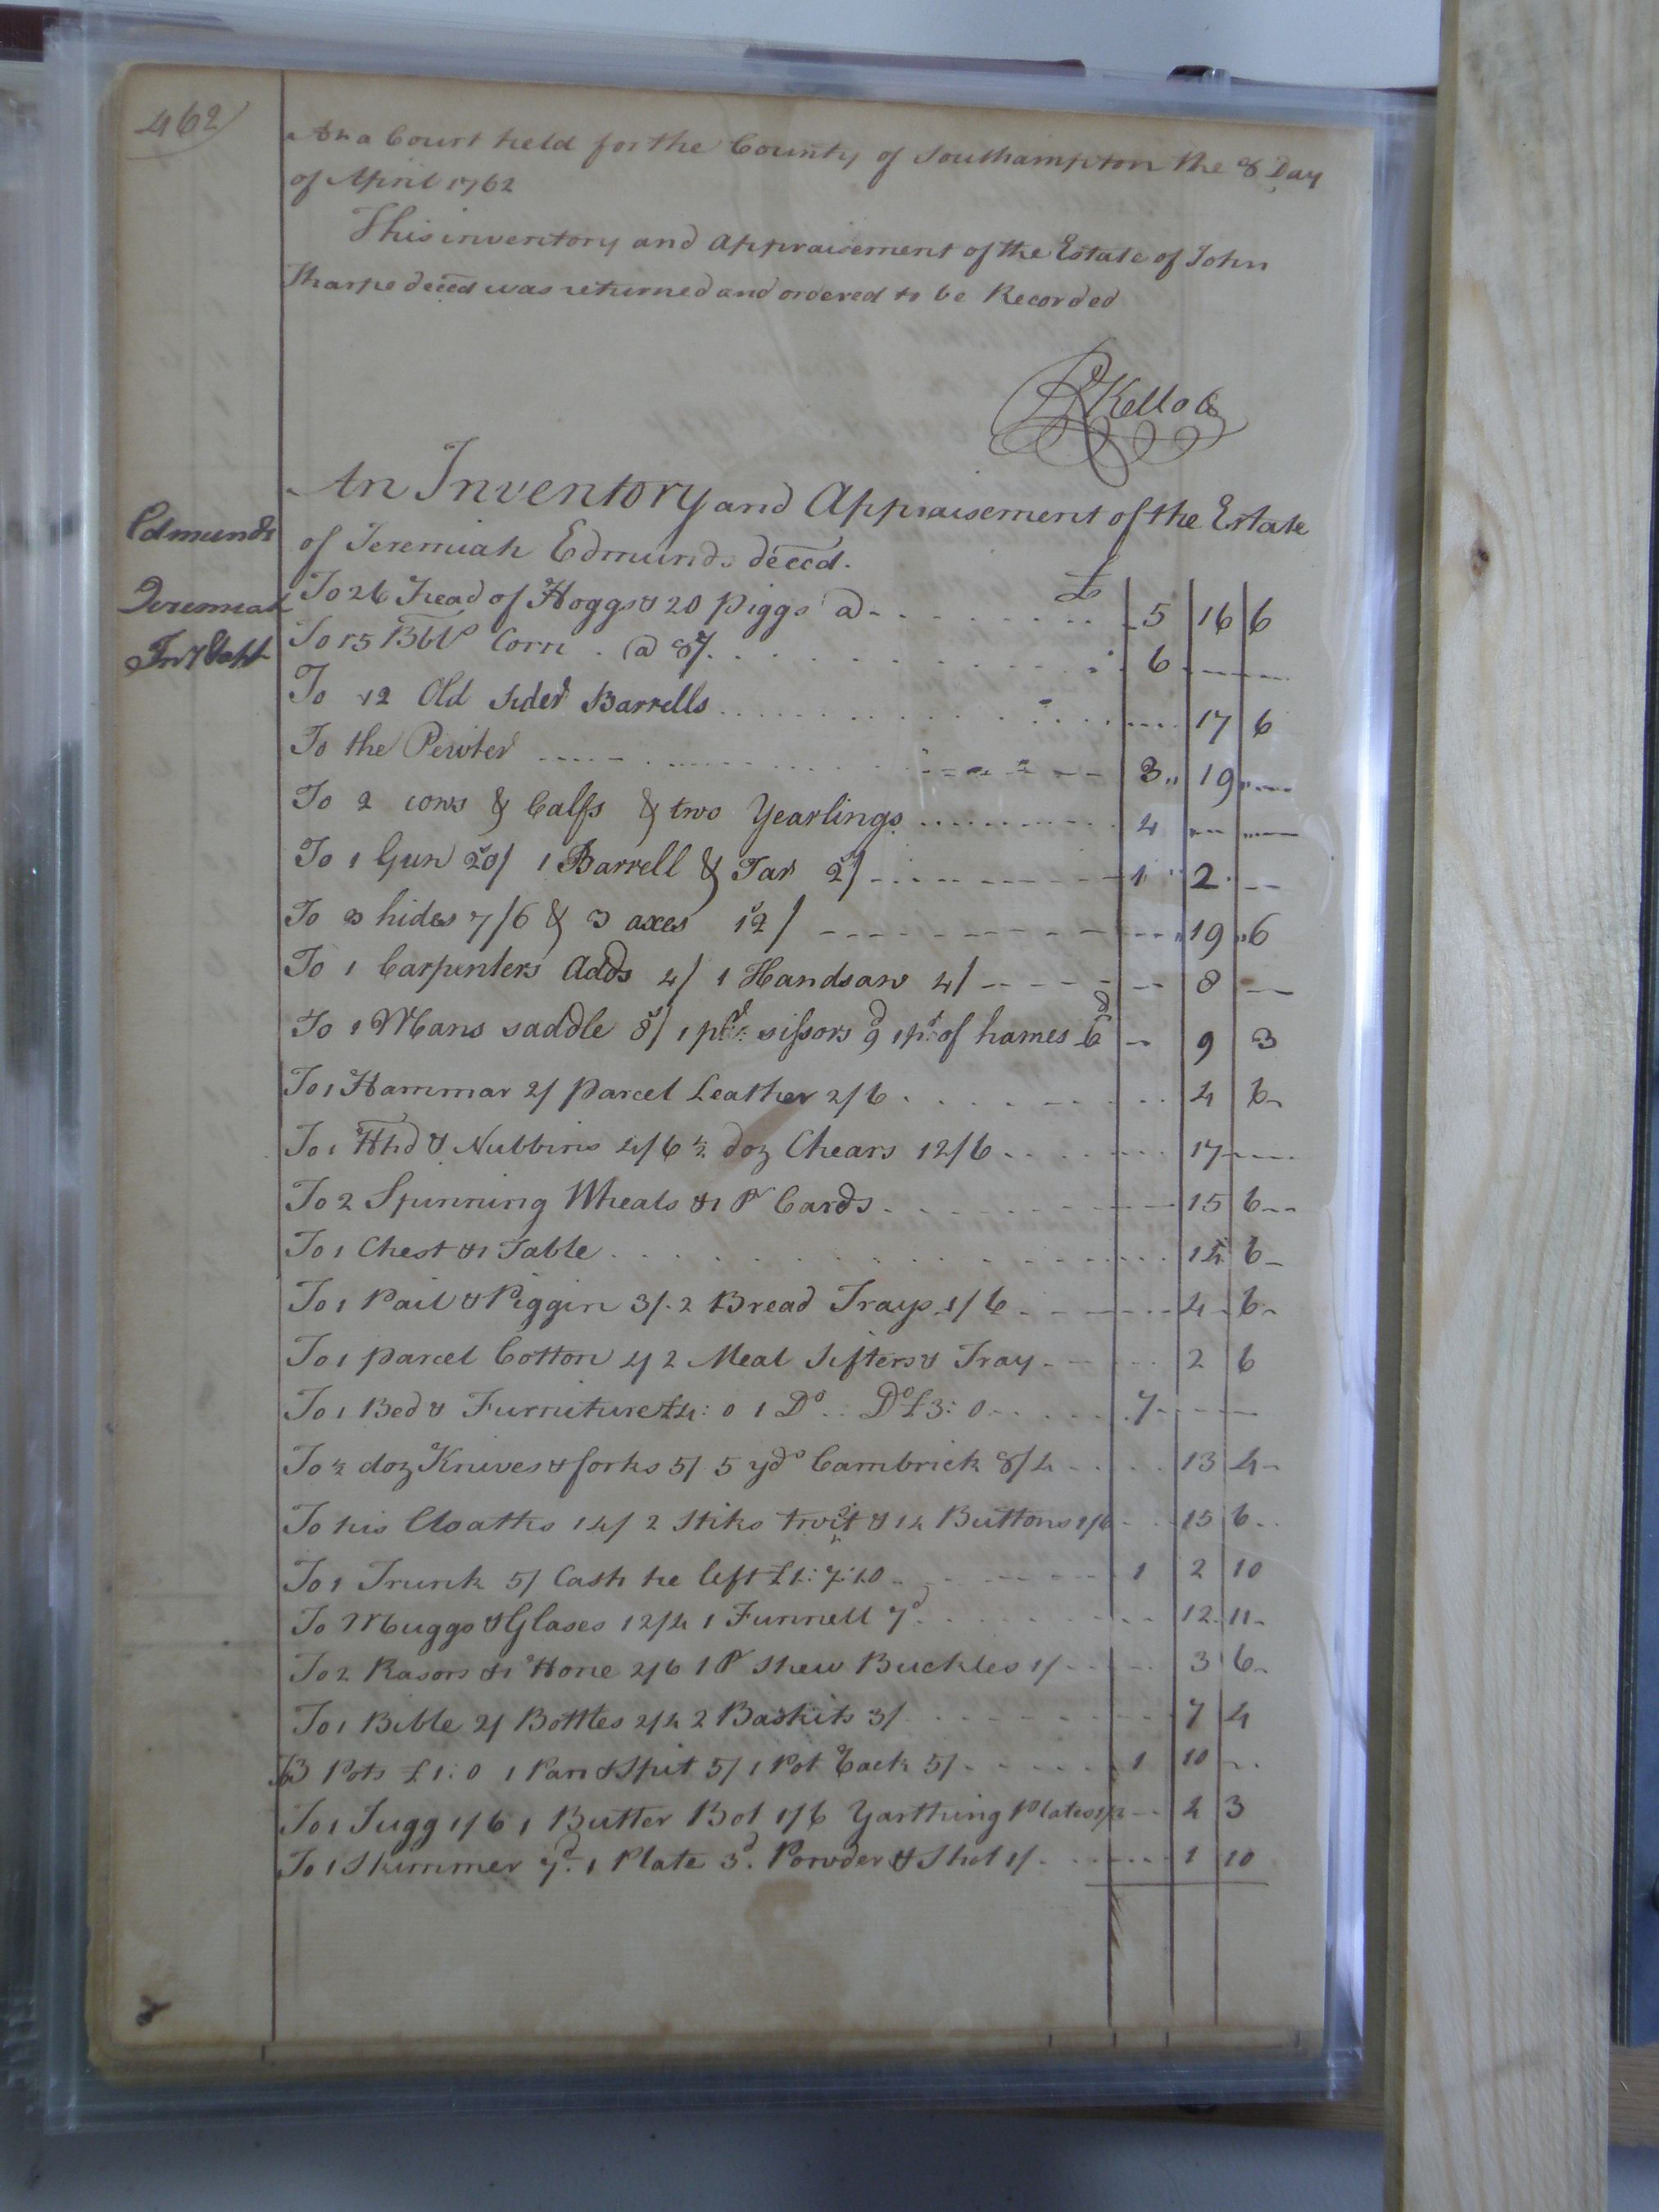 462
At a Court held for the County of Southampton the 8 Day
of April 1762
This inventory and appraisement of the Estate of John
Sharpe deced was returned and ordered to be Recorded
R Kello
An Inventory and Appraisement of the Estate
Edmunds
of Jeremiah Edmunds deced. £
Jeremiah
To 26 Head of Hoggs & 20 Piggs a 5 16 6
To 15 Bbls Corn @ 8/ 6
To 12 Old Sider Barrells 17 6
To the Pewter 3 19
To 2 cows & Calfs & two Yearlings 4
To 1 Gun 20/ 1 Barrell & Tar 2/ 1 2
To 3 hides 7/6 & 3 axes 12/ 19 6
To 1 Carpenters Adds 4/ 1 Handsaw 4/ 8
To 1 Mans saddle 8/ 1 pr sissors 9d 1 pr of hames 6d 9 3
To 1 Hammar 2/ parcel Leather 2/6 4 6
To 1 Hhd & Nubbins 4/6 ½ doz Chears 12/6 17
To 2 Spinning Wheals & 1 Pr Cards 15 6
To 1 Chest & 1 Table 6
To 1 Pail & Piggin 3/. 2 Bread Trays 1/6 4 6
To 1 parcel Cotton 2 Meal Sifters & Tray 2 6
To 1 Bed & Furniture £4: 0 1 Do Do £3: 0 7
To ½ doz Knives & forks 5/ 5 yds Cambrick 8/4 13 4
To his Cloaths 14/ 2 Stiks twist & 14 Buttons 1/6 15 6
To 1 Trunk 5/ Cash he left 1 2 10
To Muggs & Glases 12/4 1 Funnell 7d 12 11
To 2 Rasors & 1 Hone 2/6 1 Pr Shew Buckles 1/ 3 6
To 1 Bible 2/ Bottles 2/4 2 Baskits 3/ 7 4
To 3 Pots £1: 0 1 Pan & Spit 5/ 1 Pot Rack 5/ 1 10
To 1 Jugg 1/6 1 Butter Bot 1/6 Plates 3
To 1 Skimmer 7d. 1 Plate 3d. Powder & Shot 1/ 1 10